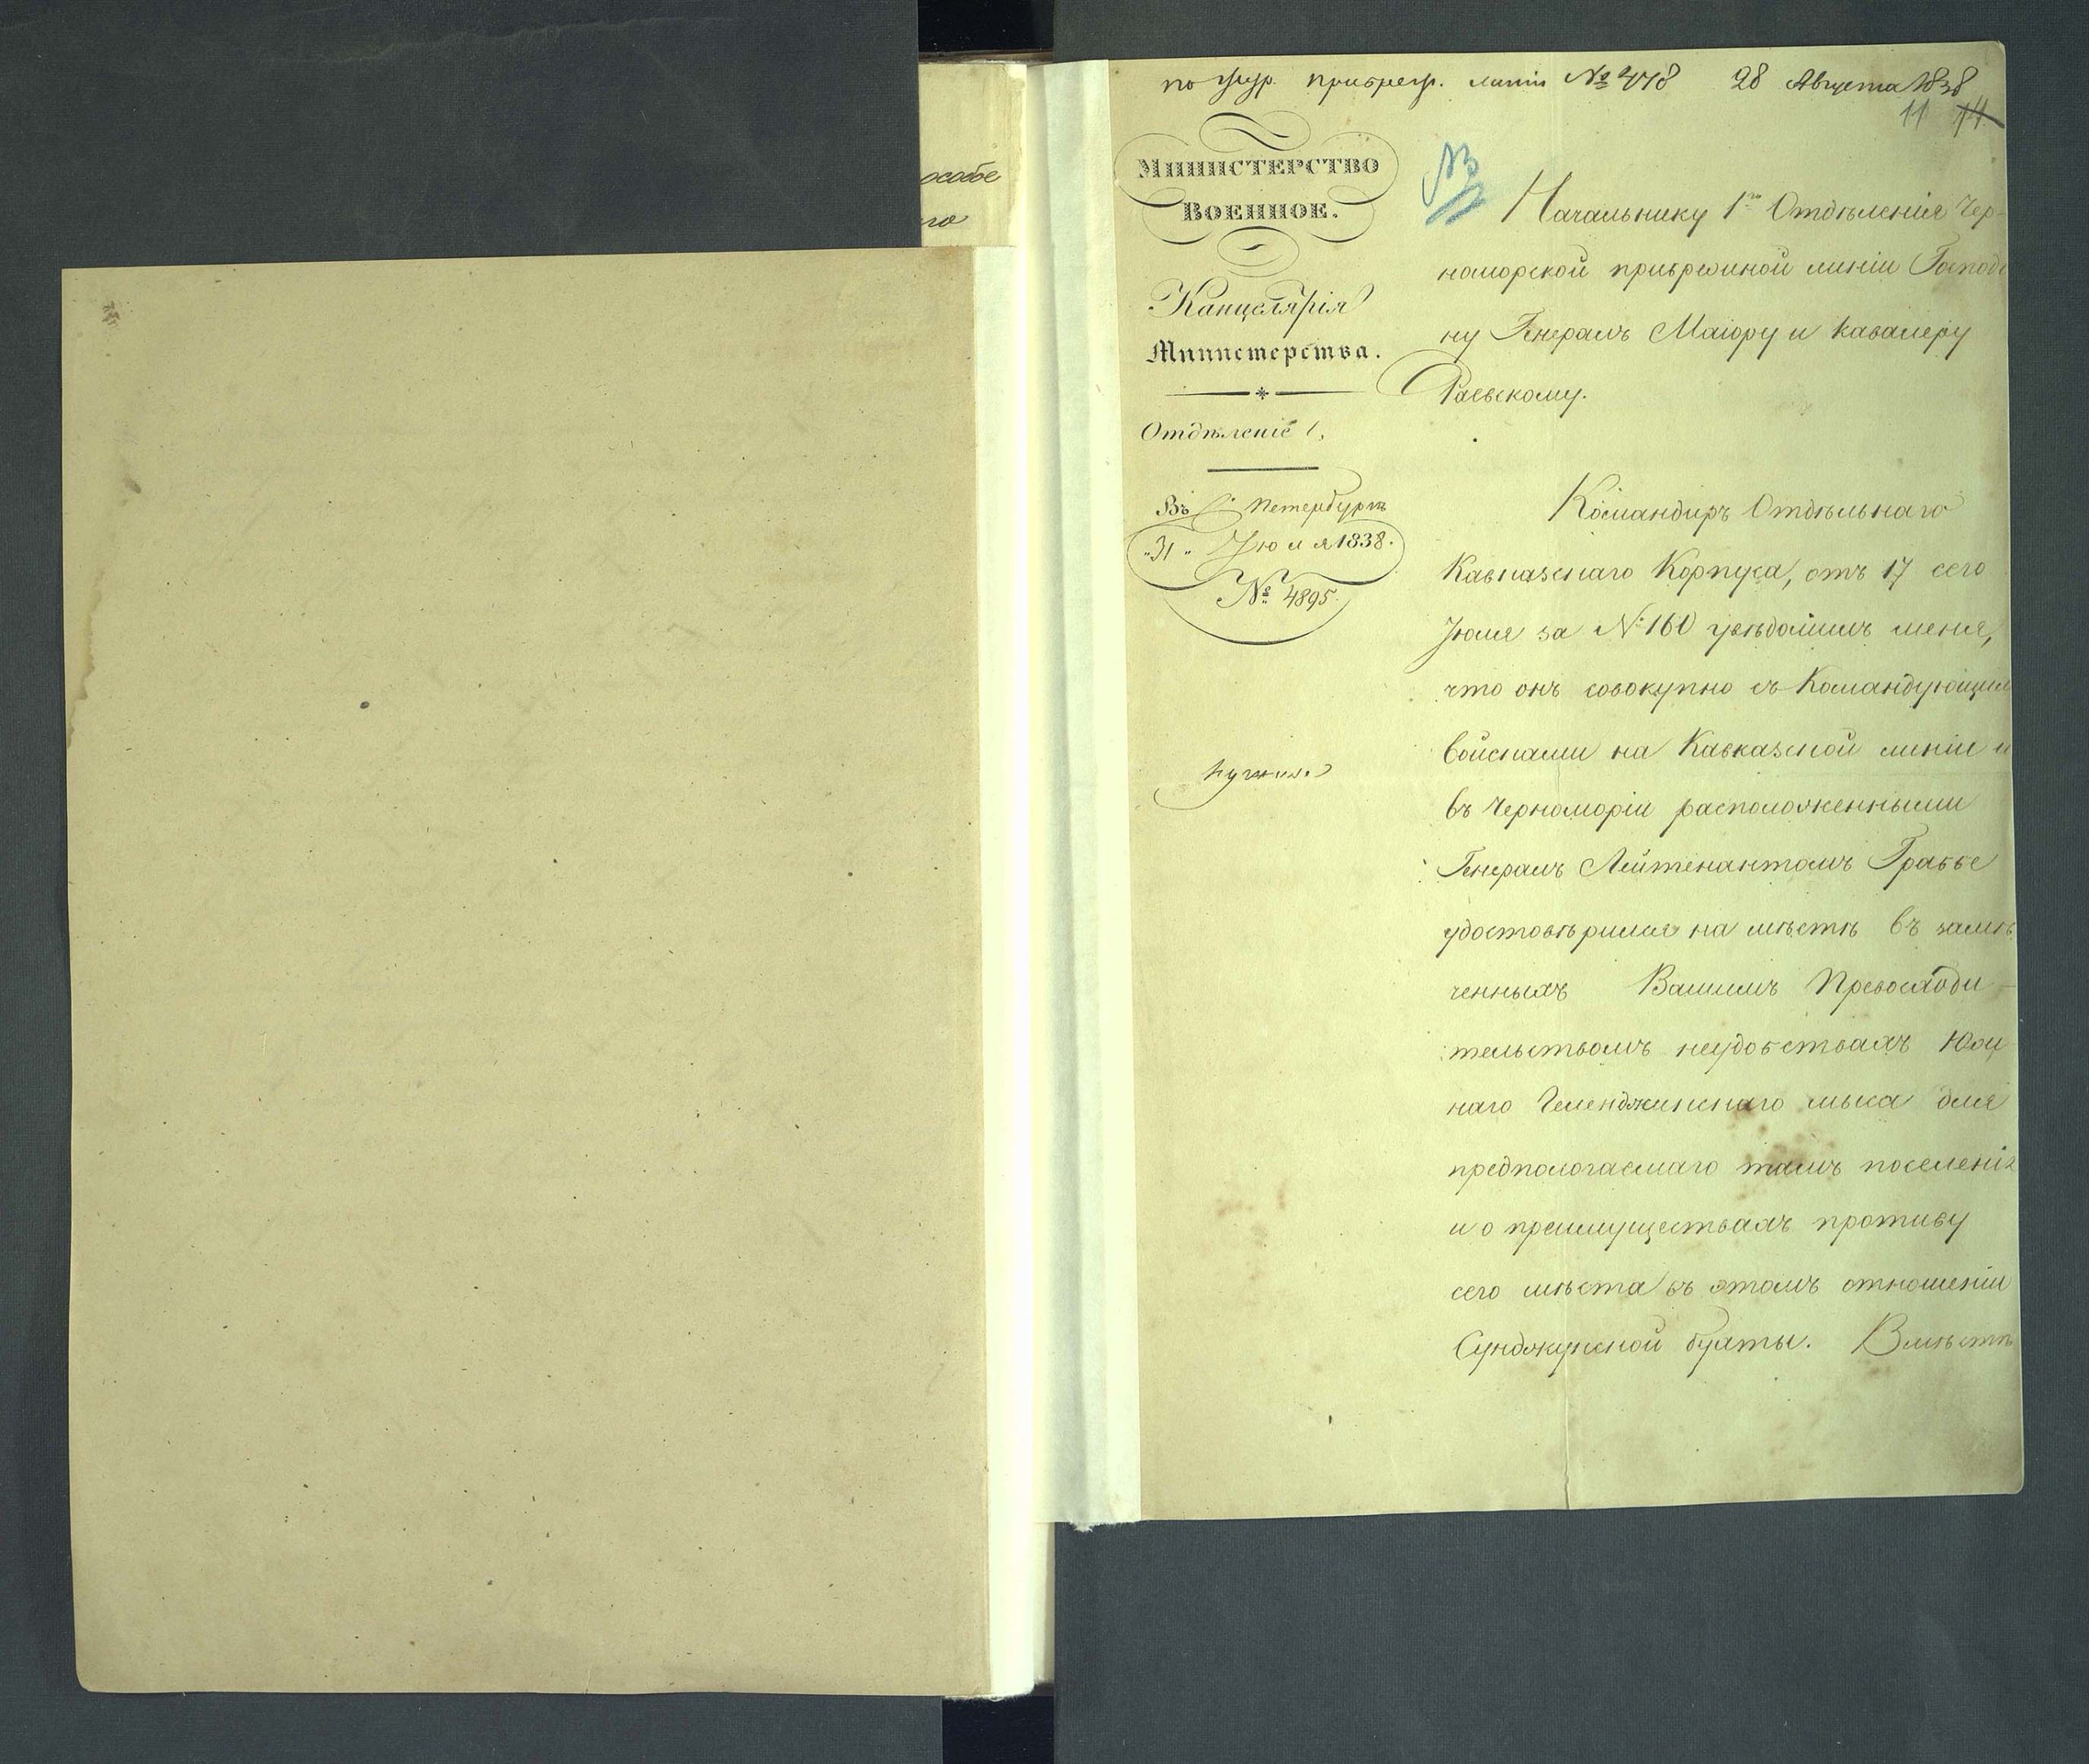 особое
го
по жур. прибреж. линіи № 478 28 Августа 1838
11 14
Министерство
Военное.
Канцелярія
Министерства.
Отдѣленіе 1,
Въ С. Петербургѣ
"31" Іюля 1838.
№ 4895.
Начальнику 1го Отдѣленія Чер-
номорской прибрежной линіи Господи
ну Генералъ Маіору и Кавалеру
Раевскому.
Командиръ Отдѣльнаго
Кавказскаго Корпуса, отъ 17 сего
Іюля за № 160 увѣдомилъ меня,
что онъ совокупно съ Командующимъ
войсками на Кавказской линіи и
въ Черноморіи расположенными
Генералъ Лейтенантомъ Граббе
удостовѣрился на мѣстѣ въ замѣ
ченныхъ Вашимъ Превосходи-
тельствомъ неудобствахъ Юж
наго Геленджикскаго мыса для
предпологаемаго тамъ поселенія
и о преимуществахъ противу
сего мѣста въ этомъ отношеніи
Сунджукской бухты. Вмѣстѣ